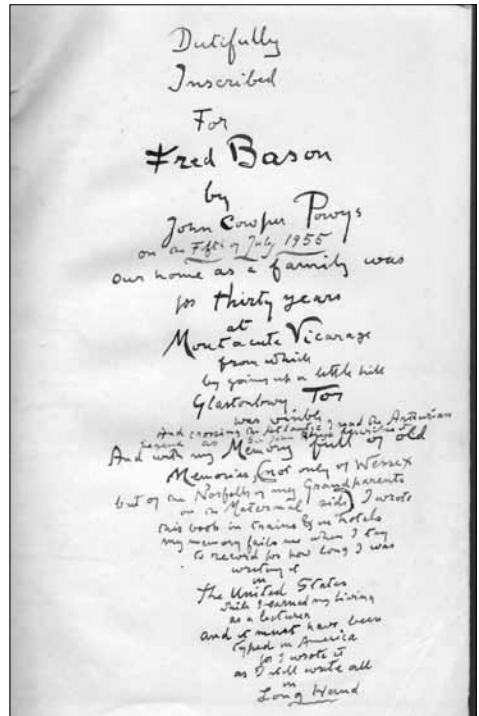 Dutifully
Inscribed
For
Fred Bason
by
John Cowper Powys
on the Fifth of July 1955
Our home as a family was
for thirty years
at
Montacute Vicarage
from which
by going up a little hill
Glastonbury Tor
was visible
And crossing the Atlantic I read the Arthurian
as Sir John Rhys
And with my Memory full of old
Memories, (not only of Wessex
but of the Norfolk of my Grandparents
on the Maternal side) I wrote
this book in trains & in hotels
my memory fails me when I try
to record for how long I was
writing it
in
the United States
while I earned my living
as a lecturer
and it must have been
typed in America
for I wrote it
as I still write all
in
Long Hand